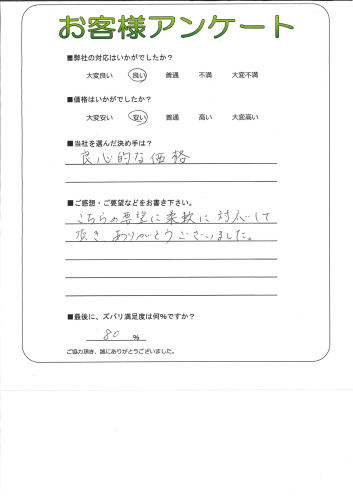 お客様アンケート
■弊社の対応はいかがでしたか?
大変良い 良い 普通 不満 大変不満
■価格はいかがでしたか?
大変安い 安い 普通 高い 大変高い
■当社を選んだ決め手は?
良心的な価格
■ご感想・ご要望などをお書き下さい。
こちらの要望に柔軟に対応して
頂き ありがとうございました。
■最後に、ズバリ満足度は何%ですか?
80 %
ご協力頂き、誠にありがとうございました。